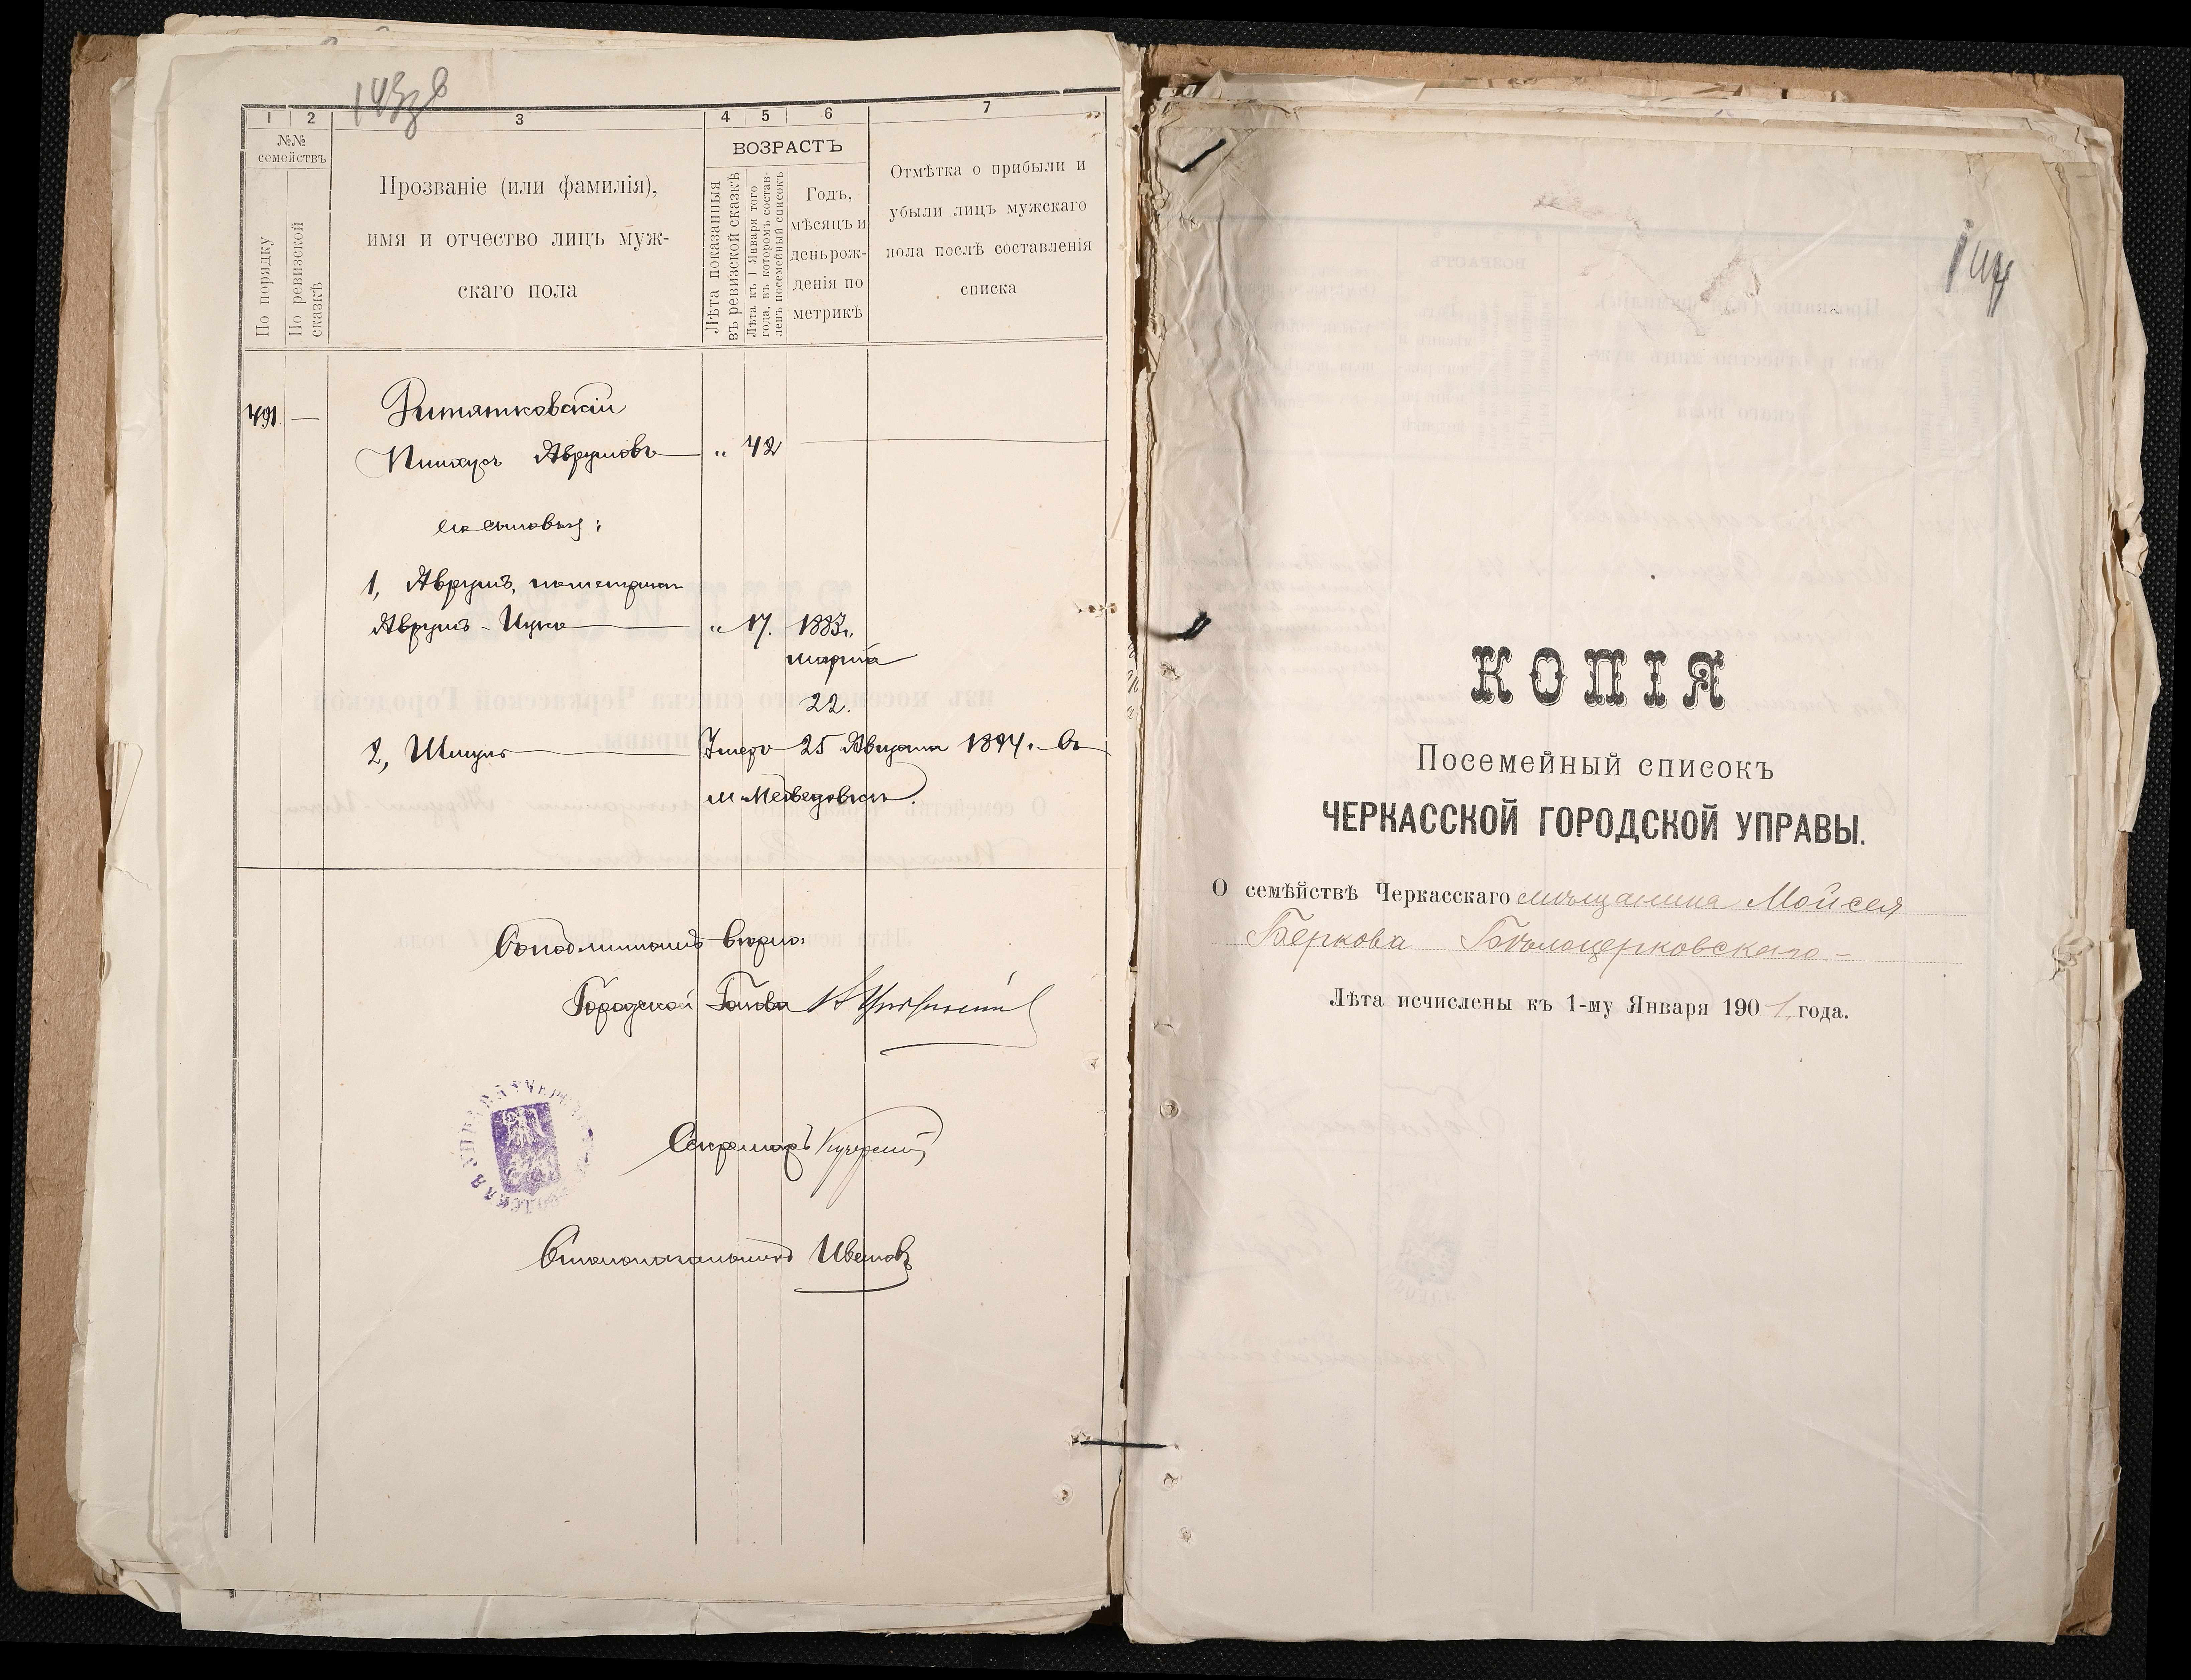 143 об
1 2 3 4 5 6 7
№№ семействъ
По порядку
По ревизской сказкѣ
Прозваніе (или фамилія),
имя и отчество лицъ муж-
скаго пола
ВОЗРАСТЪ
Лѣта показанныя
въ ревизской сказкѣ
Лѣта къ 1 Января того
года, въ которомъ состав-
ленъ посемейный списокъ
Годъ,
мѣсяцъ и
день рож-
денія по
метрикѣ
Отмѣтка о прибыли и
убыли лицъ мужскаго
пола послѣ составленія
списка
491. —
Пинхусъ Аврумовъ „ 42
его сыновья:
1, Аврумъ, по метрикѣ
Аврумъ-Ицко „ 17. 1883 г.
марта
22.
2, Шмуль Умеръ 25 Августа 1894 г. въ
м. Медведовкѣ.
Съ подлиннымъ вѣрно:
Городской Голова
Секретарь
Столоначальникъ Ивановъ
144
КОПІЯ
Посемейный списокъ
ЧЕРКАССКОЙ ГОРОДСКОЙ УПРАВЫ.
О семѣйствѣ Черкасскаго мѣщанина Мойсея
Беркова Бѣлоцерковскаго –
Лѣта исчислены къ 1-му Января 1901 года.